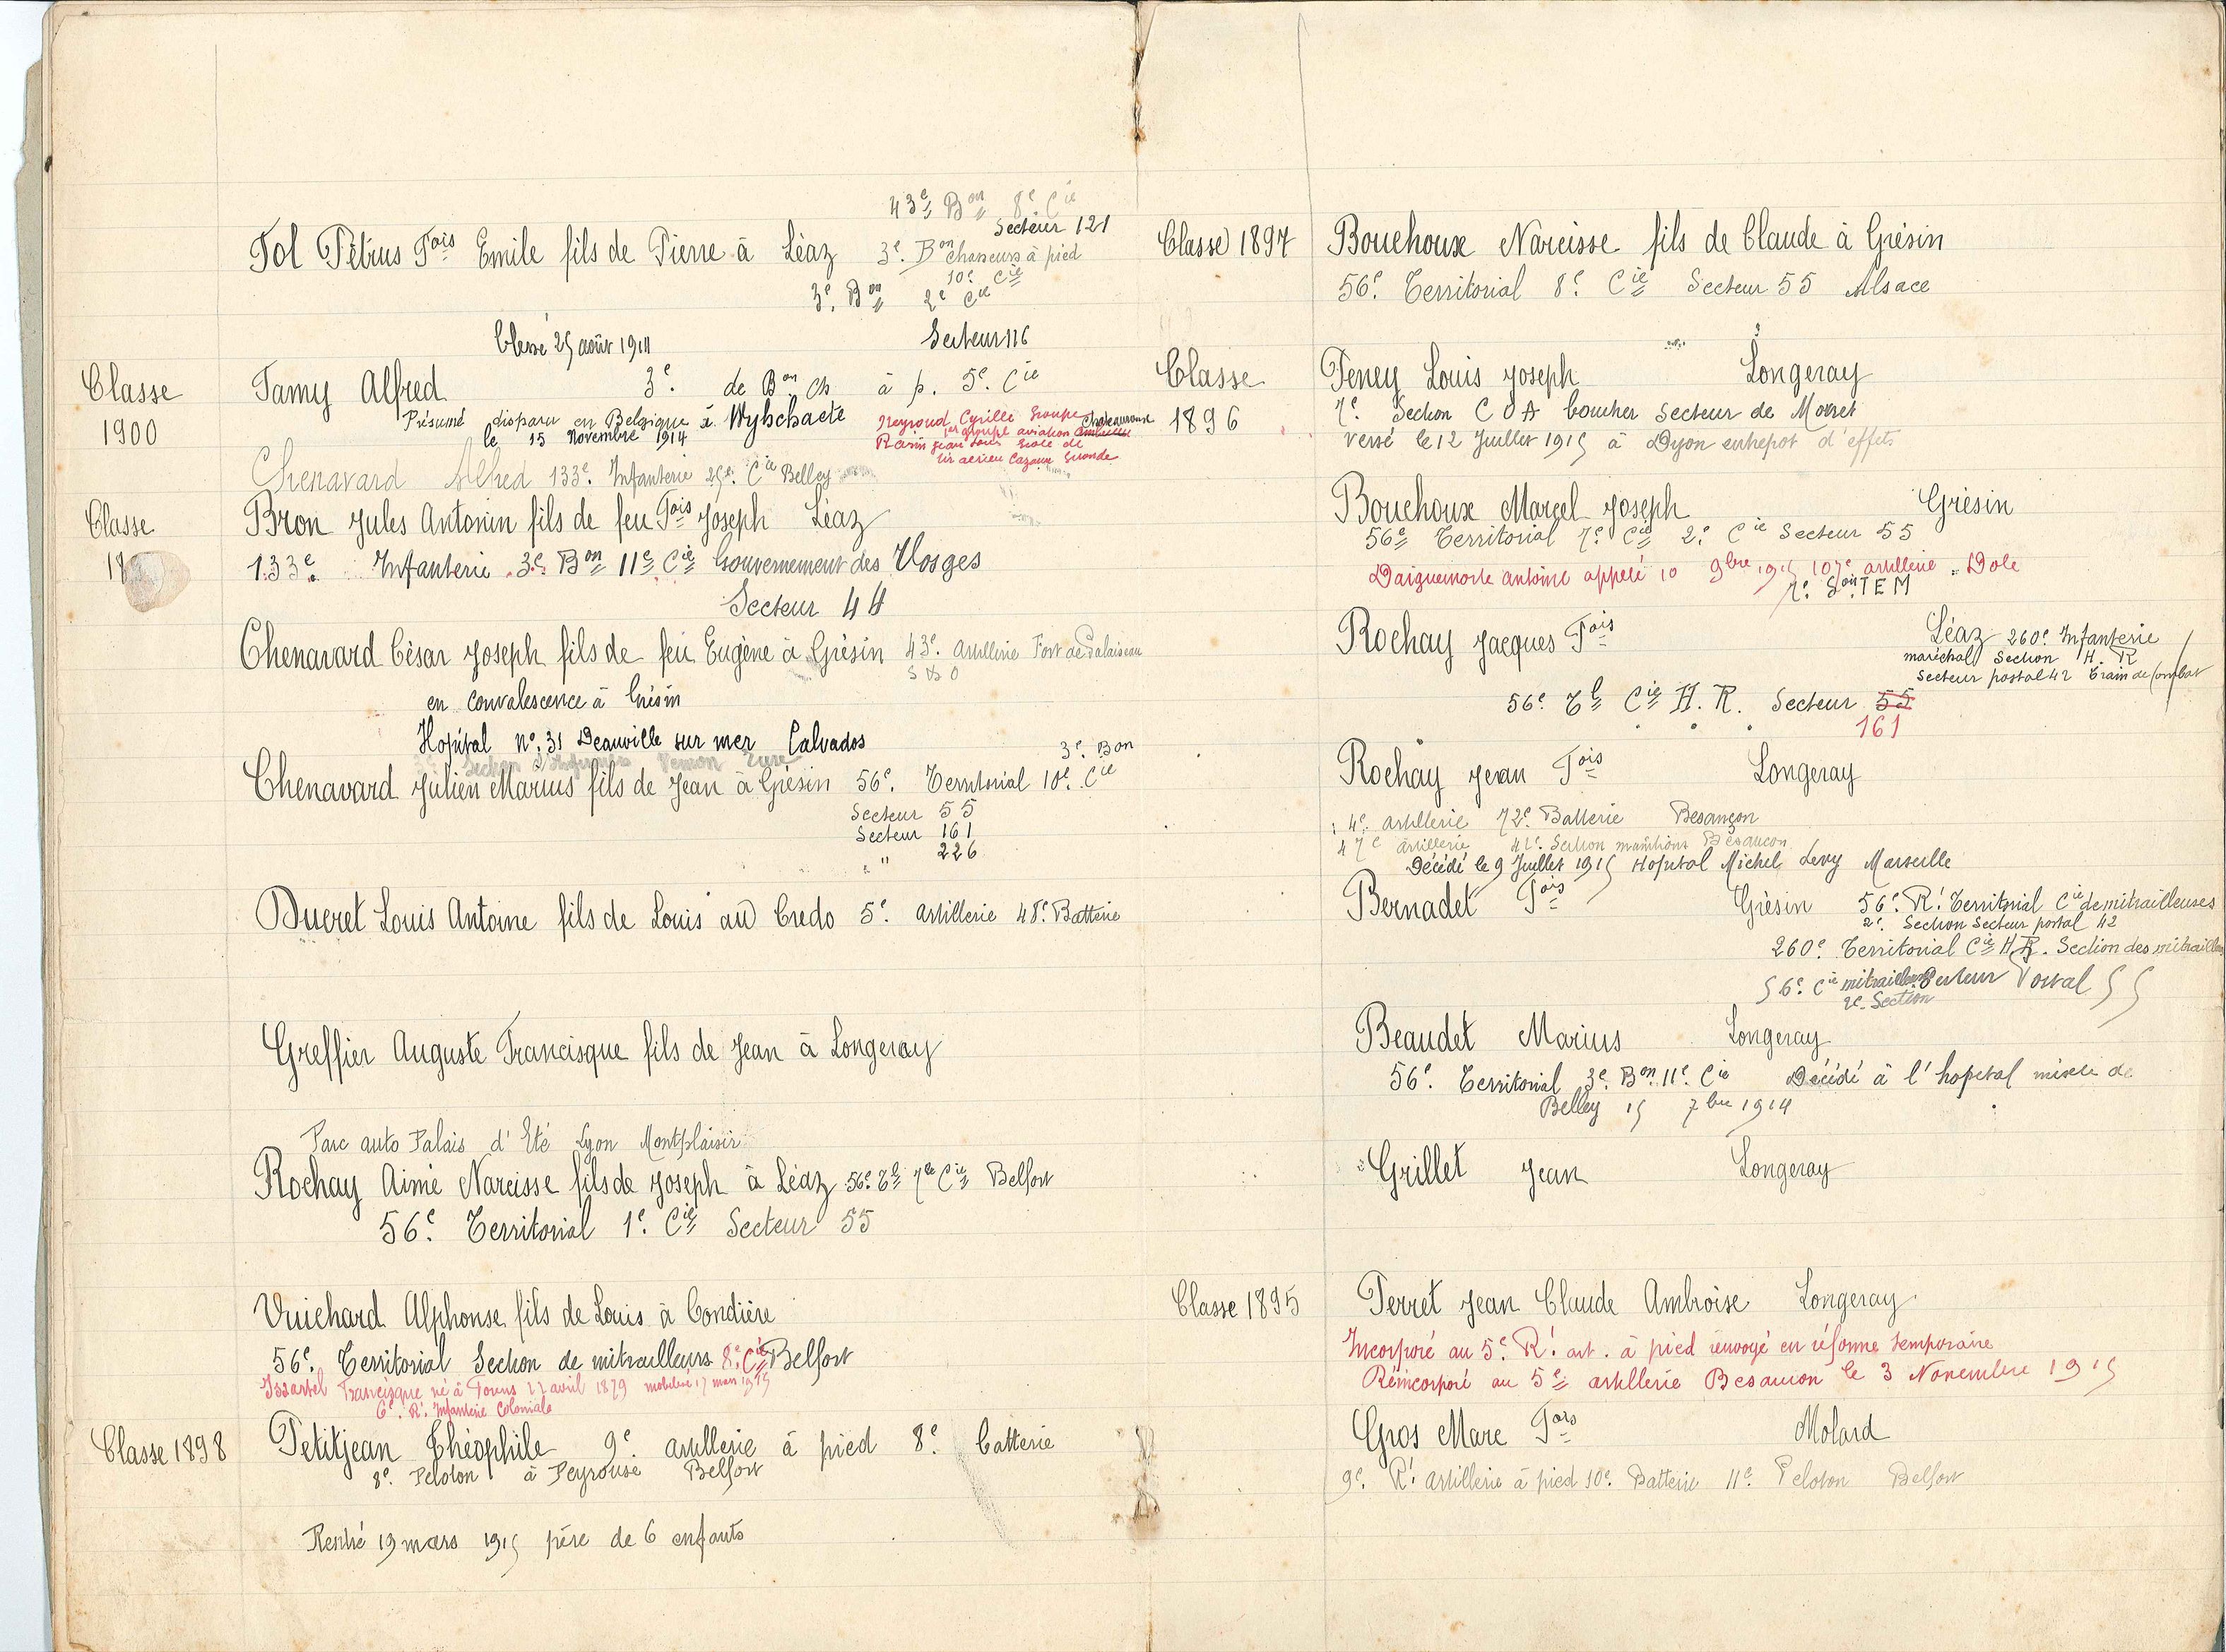 43e Bon 8e Cie
Secteur 121
Fol Pétrus Fois Emile fils de Pierre à Léaz 3e. Bon Chasseurs à pied
10e Cie
3e. Bon 2e Cie
blessé 25 août 1914 Secteur 116
Classe 1900
Famy Alfred 3e. de Bon Ch à p. 5e. Cie
Présumé disparu en Belgique à Wytschaete
le 15 novembre 1914
Neyroud Cyrille Groupe Chateauroux
1er groupe aviation
Ravin Jean Louis Ecole de
tir aérien Cazaux Gironde
Chenavard Alfred 133e. Infanterie 25e. Cie Belley
Classe
18
Bron Jules Antonin fils de feu Fois Joseph Léaz
133e. Infanterie 3e. Bon 11e Cie Gouvernement des Vosges
Secteur 44
Chenavard César Joseph fils de feu Eugène à Grésin 43e. Artillerie Fort de Palaiseau
en convalescence à Grésin
Hopital no. 31 Deauville sur mer Calvados
Section d'Infirmiers Vernon Eure
3e. Bon
Chenavard Julien Marius fils de Jean à Grésin 56e. Territorial 10e. Cie
Secteur 55
Secteur 161
" 226
Ducret Louis Antoine fils de Louis au Credo 5e. artillerie 48e. Batterie
Greffier Auguste Francisque fils de Jean à Longeray
Parc auto Palais d'Eté Lyon Montplaisir
Rochay Aimé Narcisse fils de Joseph à Léaz 56e. Tl 7e Cie Belfort
56e. Territorial 1e. Cie Secteur 55
Vuichard Alphonse fils de Louis à Condière
56e. Territorial Section de mitrailleurs 8e. Cie Belfort
Francisque né à 27 avril 1879 mobilisé 17 mars 1915
6e. Rt. Infanterie Coloniale
Classe 1898
Petitjean Théophile 9e. artillerie à pied 8e. batterie
8e. Peloton à Peyrouse Belfort
Rentré 19 mars 1915 père de 6 enfants
Classe 1897
Bouchoux Narcisse fils de Claude à Grésin
56e. Territorial 8e. Cie Secteur 55 Alsace
Classe 1896
Peney Louis Joseph Longeray
7e. Section C O A boucher Secteur de
versé le 12 Juillet 1915 à Dyon entrepot d'effets
Bouchoux Marcel Joseph Grésin
56e Territorial 7e. Cie 2e. Cie Secteur 55
Daiguemorte antoine appelé 10 9bre 1915 107e artillerie Dole
7e. Son T E M
Rochay Jacques Fois Léaz 260e Infanterie
maréchal Section H. R
Secteur postal 42 Train de Combat
56e. Tl Cie H. R. Secteur 55
161
Rochay Jean Fois Longeray
4e. artillerie 72e. Batterie Besançon
47e artillerie 41e. Section munitions Besançon
Décédé le 9 Juillet 1915 Hopital Michel Levy Marseille
Bernadet Fois Grésin 56e. Rt. Territorial Cie de mitrailleuses
2e. Section Secteur postal 42
260e. Territorial Cie H. R. Section des mitrailleurs
56e. Cie mitrailleurs Secteur Postal 55
2e Section
Beaudet Marius Longeray
56e. Territorial 3e. Bon 11e. Cie Décédé à l'hopital mixte de
Belley 15 7bre 1914
Grillet Jean Longeray
Classe 1895
Perret Jean Claude Ambroise Longeray
Incorporé au 5e. Rt. art. à pied renvoyé en réforme temporaire
Réincorporé au 5e artillerie Besançon le 3 Novembre 1915
Gros Marc Fois Molard
9e. Rt. artillerie à pied 10e. Batterie 11e. Peloton Belfort